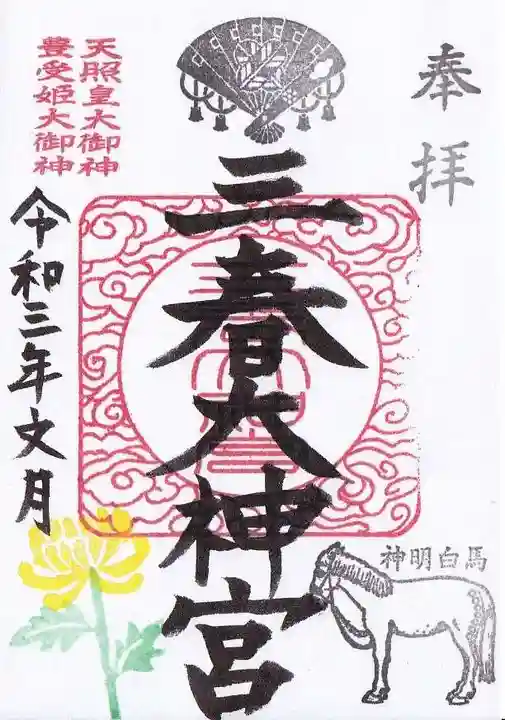 奉拝
三春大神宮
天照皇大御神
豊受姫大御神
令和三年文月
神明白馬